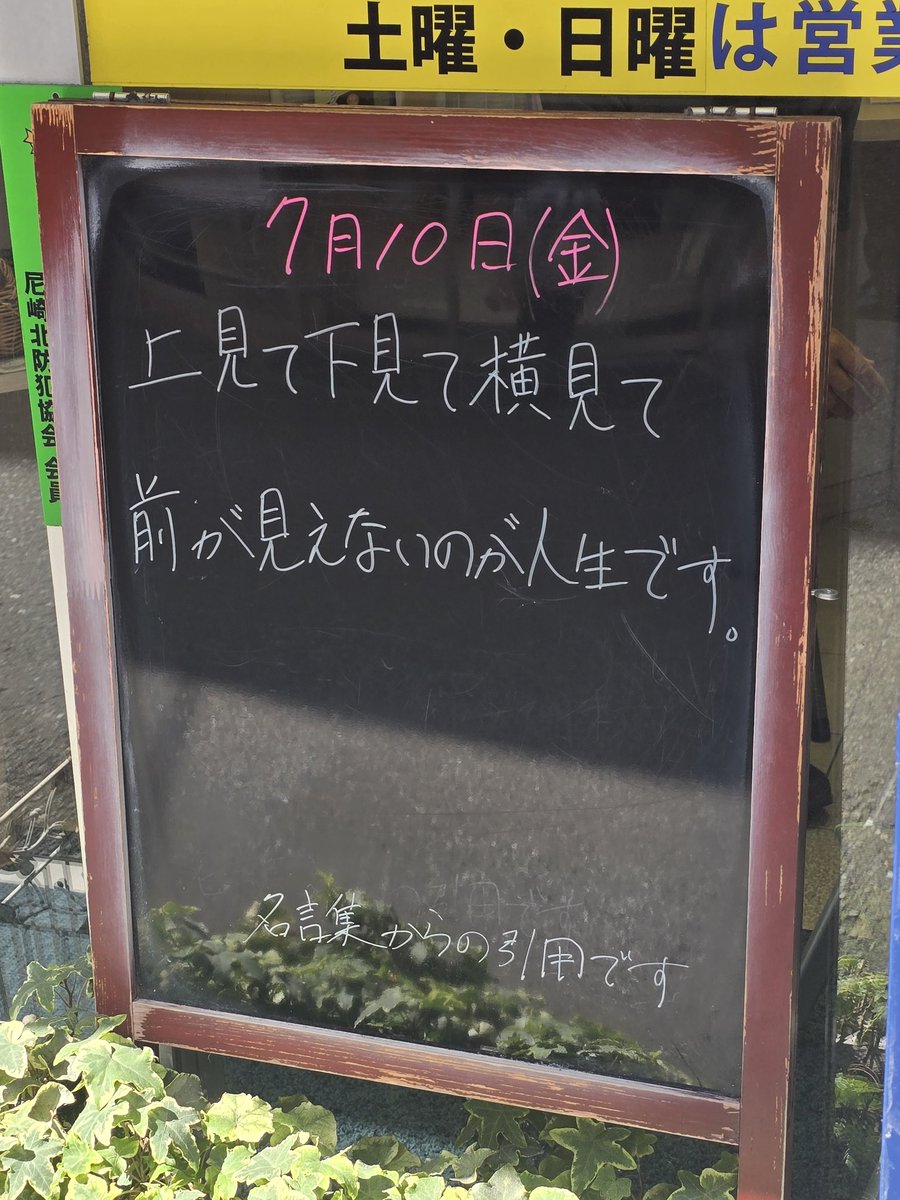 土曜・日曜は営業
尼崎北防犯協会 会員
7月10日(金)
上見て下見て横見て
前が見えないのが人生です。
名言集からの引用です